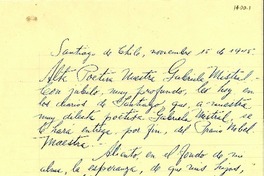 Santiago de Chile, noviembre 15 de 1945.
Alta Poetisa Maestra Gabriela Mistral -
Con júbilo, muy profundo, leo hoy en
los diarios de Santiago, que a nuestra
muy dilecta poetisa Gabriela Mistral, se
le hará entrega, por fin, del Premio Nobel.
Maestra:
Aliento, en el fondo de mi
alma, la esperanza, de que mis hijos,